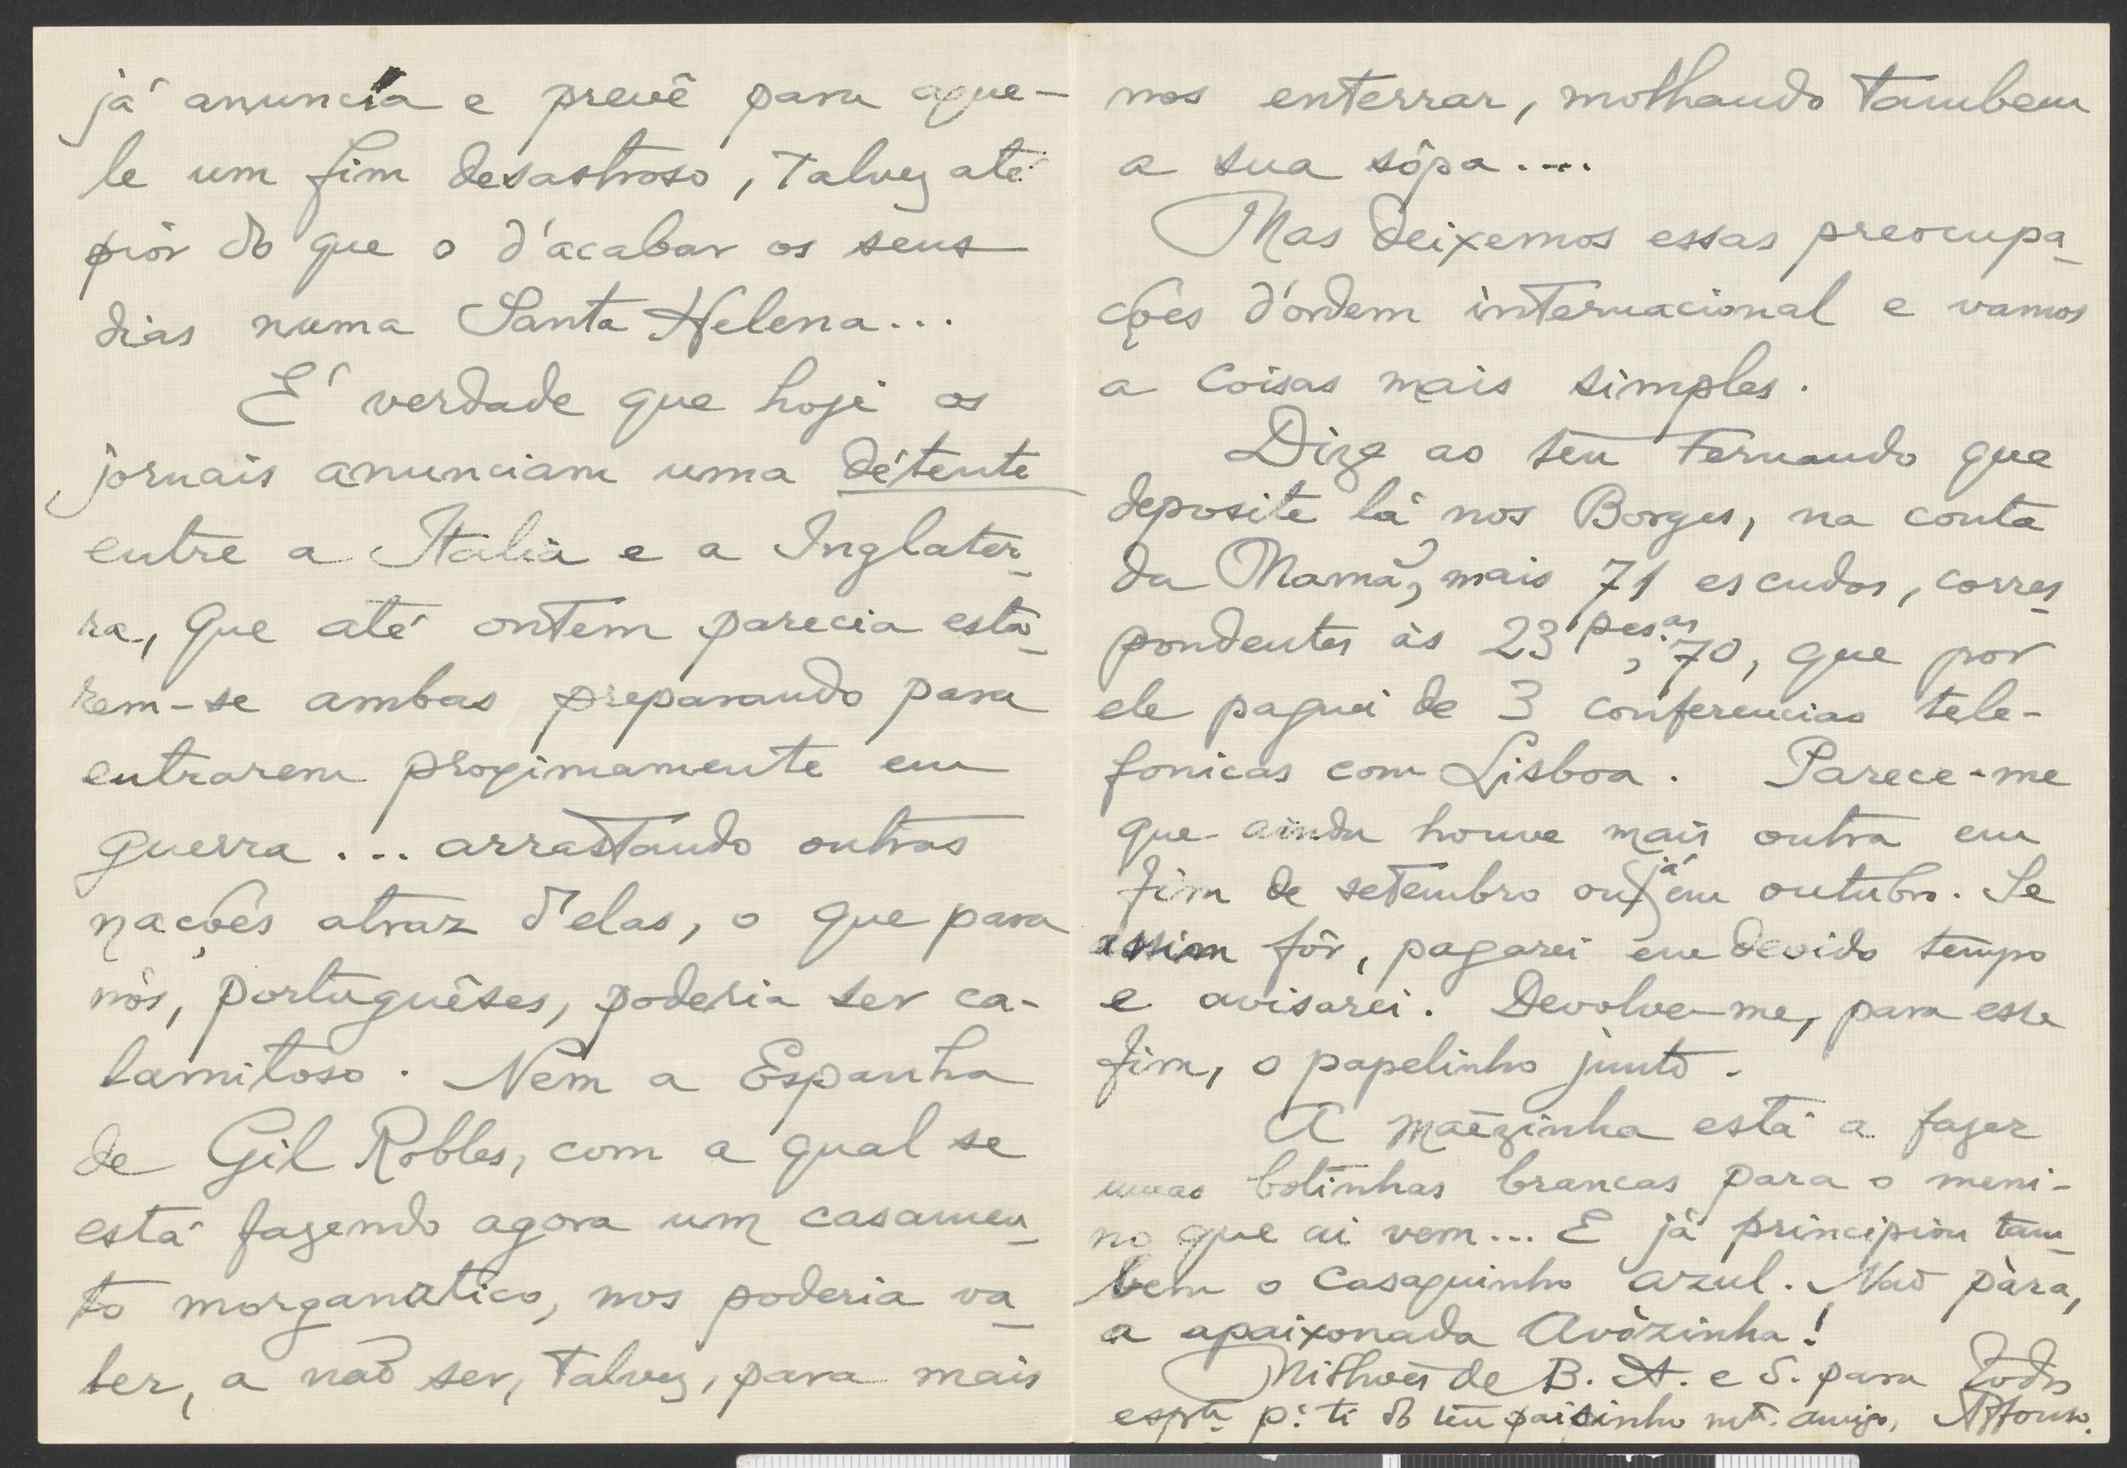 já anuncía e prevê para aque-
le um fim desastroso, talvez até
piór do que o d'acabar os seus
dias numa Santa Helena...
É verdade que hoje os
jornais anunciam uma détente
entre a Italia e a Inglater-
ra, que até ontem parecia esta-
rem-se ambas preparando para
entrarem proximamente em
guerra... arrastando outras
nações atraz d'elas, o que para
nós, portuguêses, poderia ser ca-
lamitoso. Nem a Espanha
de Gil Robles, com a qual se
está fazendo agora um casamen-
to morganatico, nos poderia va-
ler, a não ser, talvez, para mais
nos enterrar, molhando tambem
a sua sôpa....
Mas deixemos essas preocupa-
ções d'órdem internacional e vamos
a coisas mais simples.
Dize ao teu Fernando que
deposite lá nos Borges, na conta
da Mamã, mais 71 escudos, corres-
pondentes ás 23 pes.as, 70, que por
ele paguei de 3 conferencias tele-
fonicas com Lisboa. Parece-me
que ainda houve mais outra em
fim de setembro ou já em outubro. Se
assim fôr, pagarei em devido tempo
e avisarei. Devolve-me, para esse
fim, o papelinho junto.
A mãezinha está a fazer
umas botinhas brancas para o meni-
no que ai vem... E já principiou tam-
bem o casaquinho azul. Não pàra,
a apaixonada Avòzinha!
Milhões de B. A. e S. para todos
espta. pa. ti do teu paisinho mto. amigo, Affonso.